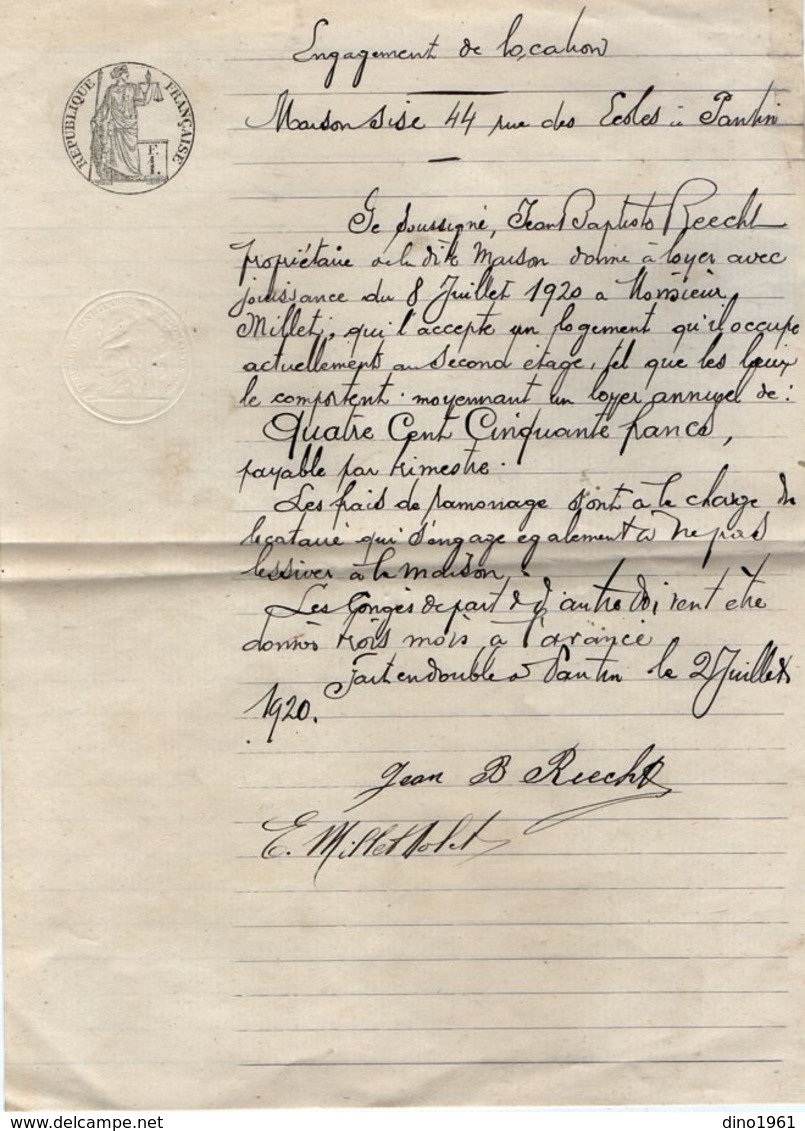 Engagement de location
RÉPUBLIQUE FRANÇAISE
F.
1.
Maison sise 44 rue des Ecoles à Pantin
Je soussigné, Jean Baptiste Reecht
propriétaire de la dite Maison donne à loyer avec
jouissance du 8 Juillet 1920 à Monsieur
Millet, qui l'accepte un logement qu'il occupe
actuellement au second étage, tel que les lieux
le comportent moyennant un loyer annuel de:
Quatre Cent Cinquante francs,
payable par trimestre.
Les frais de ramonage sont à la charge du
locataire qui s'engage egalement à ne pas
lessiver à la maison,
Les Congés de part & d'autre doivent etre
donnés trois mois à l'avance
Fait en double à Pantin le 2 Juillet
1920.
Jean B Reecht
E. Millet
dino1961